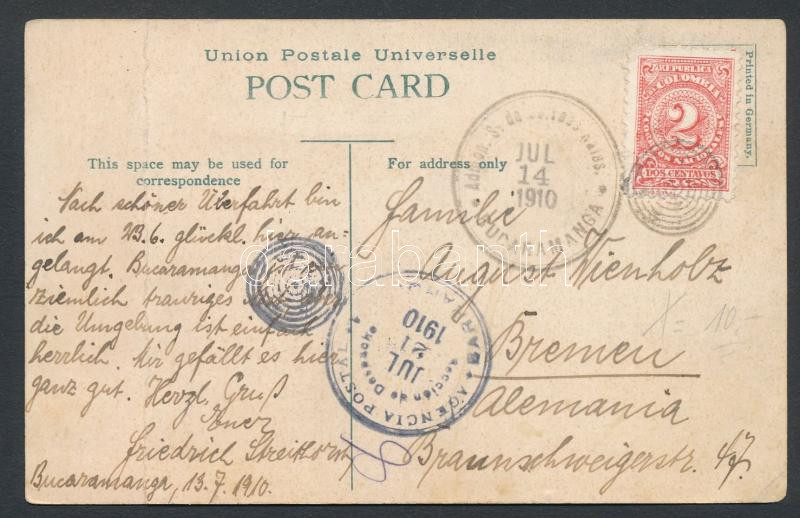 Union Postale Universelle
POST CARD
Printed in Germany.
This space may be used for
correspondence
For address only
Nach schöner Überfahrt bin
ich am 23.6. glückl. hier an-
gelangt. Bucaramanga
ziemlich trauriges
die Umgebung ist einfach
herrlich. Mir gefällt es hier
ganz gut. Herzl. Gruß
Euer
Friedrich Streithorst
Bucaramanga, 13.7.1910.
Familie
August Wienholz
Bremen
Alemania
Braunschweigerstr. 47.
REPUBLICA
DE COLOMBIA
2
DOS CENTAVOS
JUL
14
1910
BUCARAMANGA
AGENCIA POSTAL
BARRANQ
Sección de
JUL
21
1910
X = 10.-
darabanth